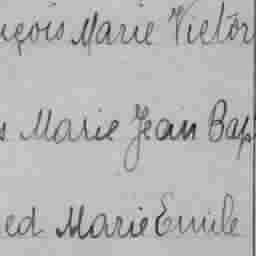 nçois Marie Victor
s Marie Jean Bap
ed Marie Emile